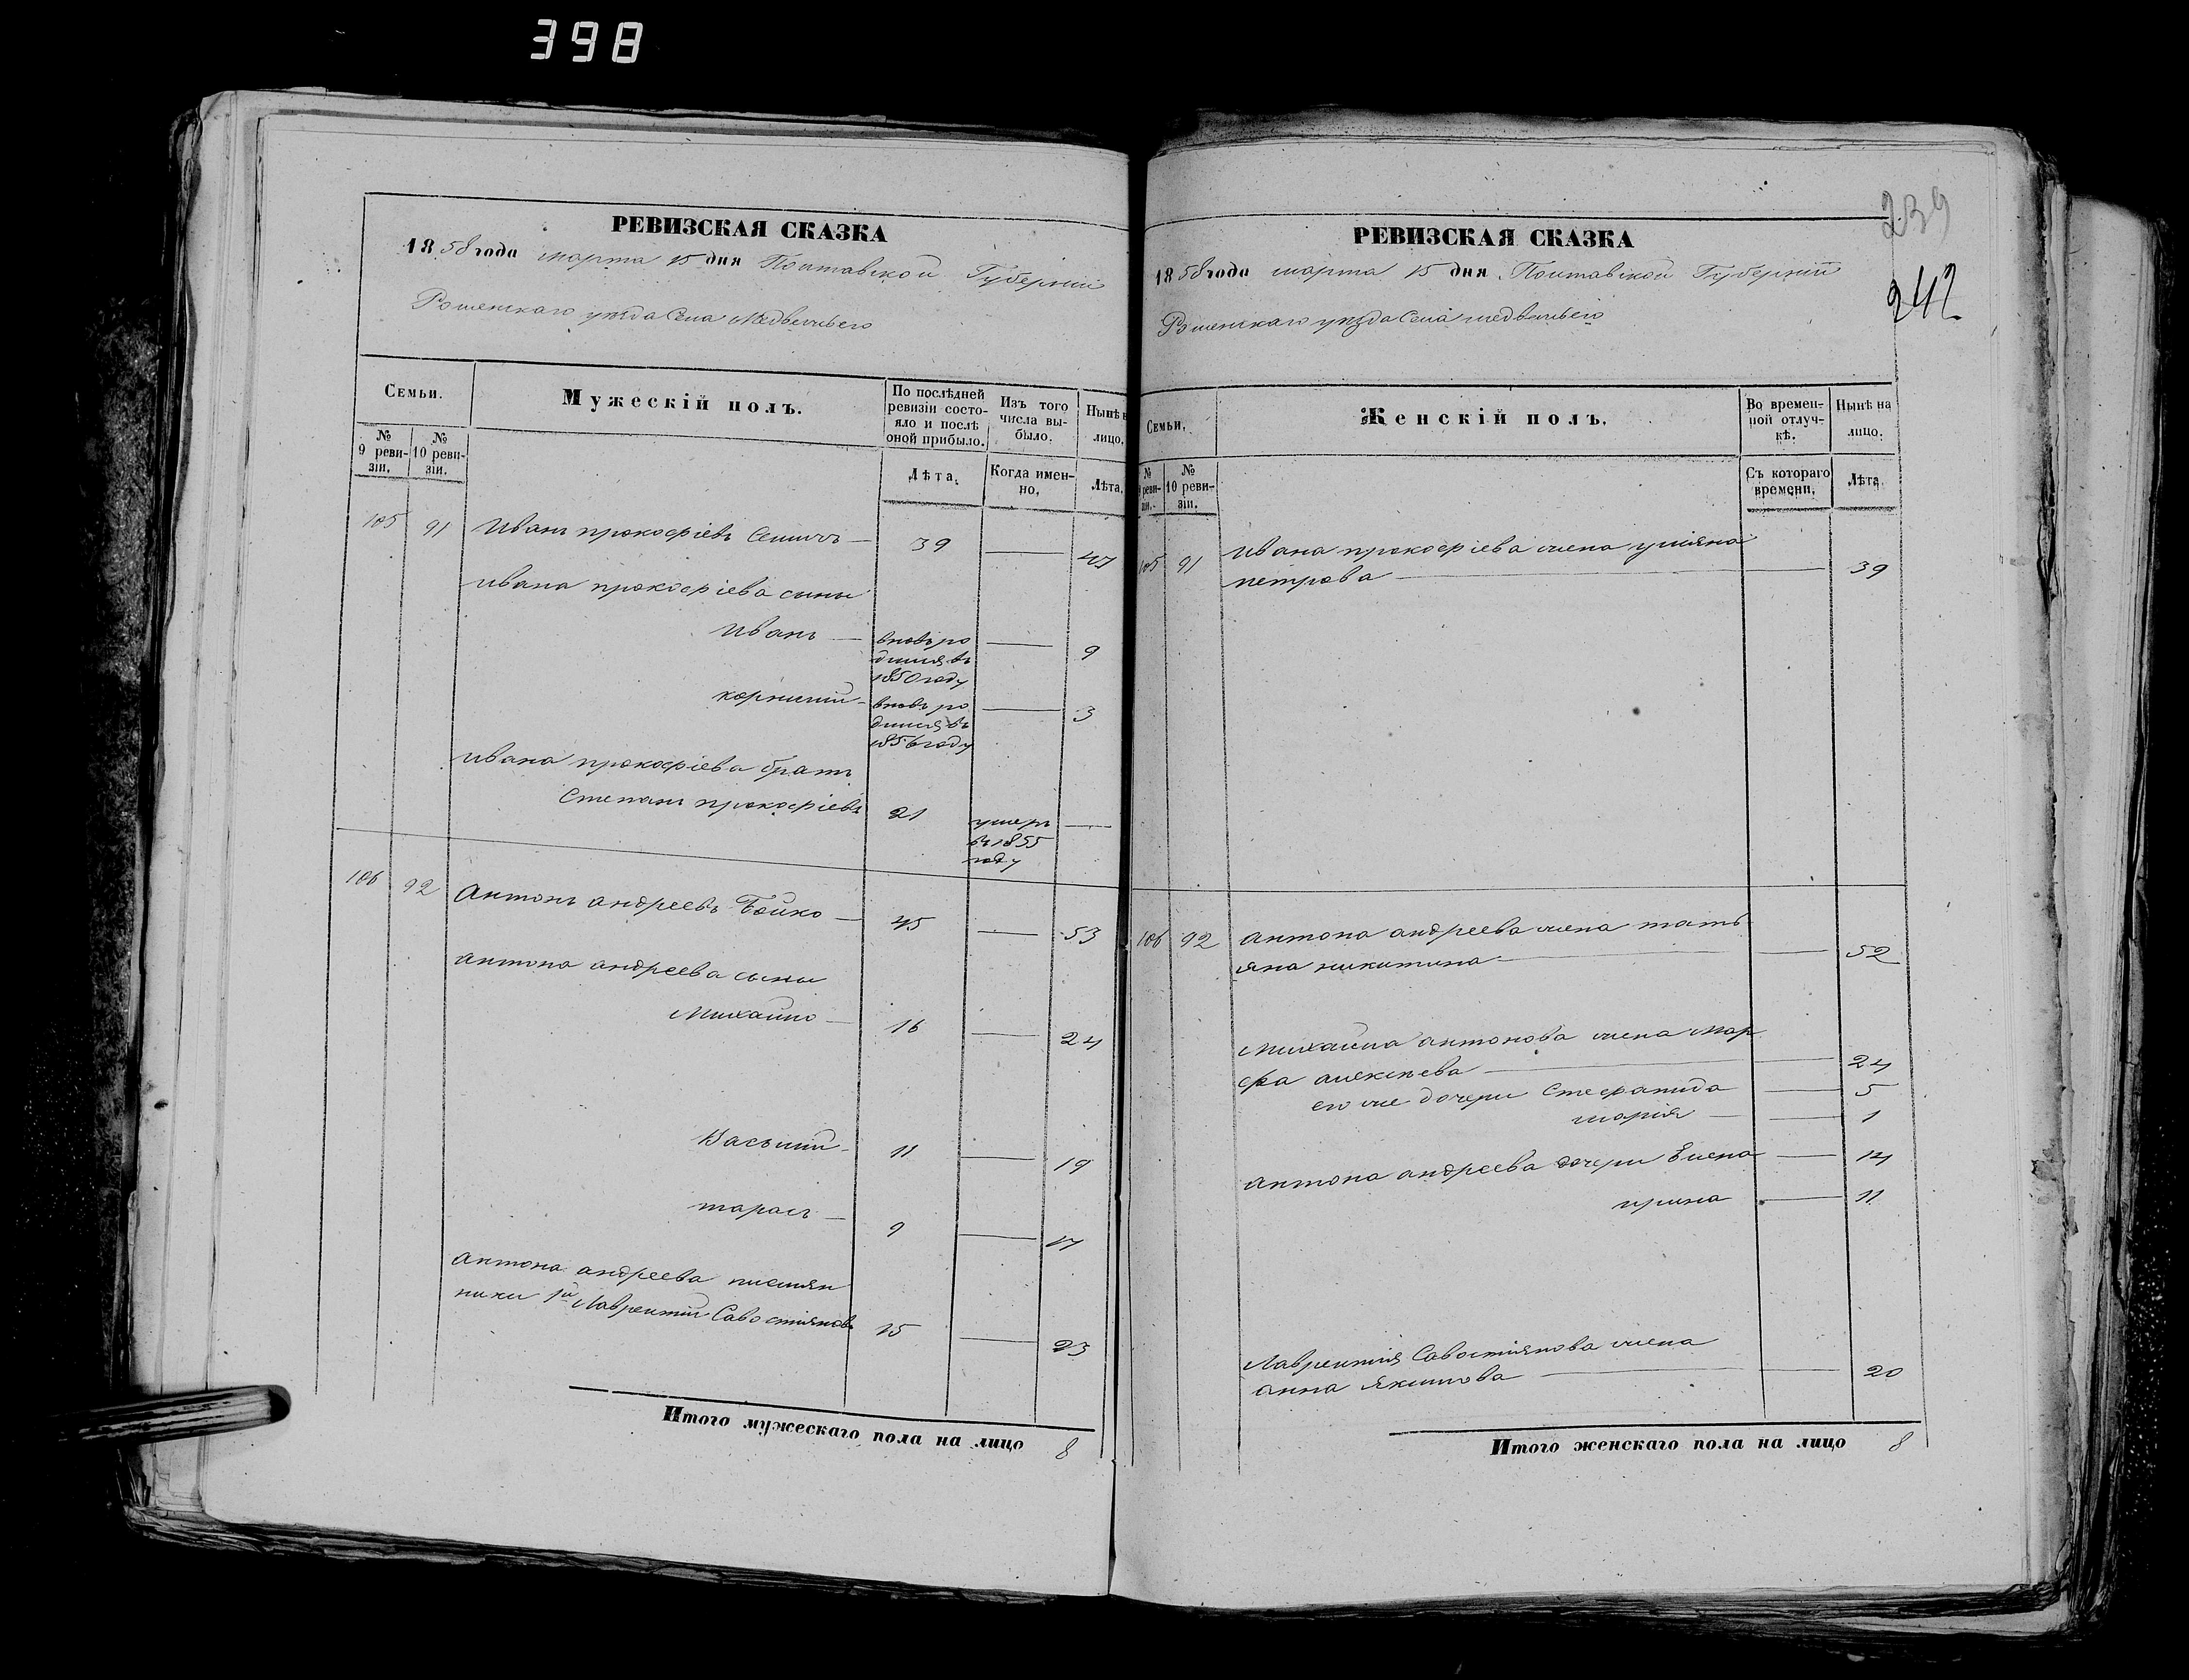 398
РЕВИЗСКАЯ СКАЗКА
1858 года марта 15 дня Полтавской Губерніи
Роменскаго уезда Села Медвежьего
Семьи.
Мужескій полъ.
По послѣдней ревизіи состояло и послѣ оной прибыло.
Изъ того числа выбыло.
Нынѣ н
лицо.
№ 9 ревизіи.
№ 10 ревизіи.
Лѣта.
Когда именно.
Лѣта.
105 91 Иванъ прокофіевъ — 39 — 47
ивана прокофіева сыны
Иванъ — вновь ро
дился въ
1850 году — 9
корнилій — вновь ро
дился въ
1856 году — 3
ивана прокофіева братъ
Степанъ прокофіевъ 21 умеръ
въ 1855
году —
106 92 Антонъ андреевъ Бойко — 45 — 53
антона андреева сыны
Михайло — 16 — 24
Василій — 11 — 19
тарасъ — 9 — 17
антона андреева племян
ники 1й Лаврентій Савостіяновъ 15 — 23
Итого мужескаго пола на лицо 8
239
242
РЕВИЗСКАЯ СКАЗКА
1858 года марта 15 дня Полтавской Губерній
Роменскаго уезда Села медвежьего
Семьи.
Женскій полъ.
Во временной отлучкѣ.
Нынѣ на лицо.
№ реви- зіи.
№ 10 ревизіи.
Съ котораго времени.
Лѣта
105 91 Ивана прокофіева жена уліяна
петрова — — 39
106 92 антона андреева жена тать
яна никитина — — 52
Михайла антонова жена мар
фа алексѣева — — 24
его же дочери Стефанида — 5
марія — — 1
антона андреева дочери Елена — 14
ирина — 11
Лаврентія Савостіянова жена
анна Якимова — — 20
Итого женскаго пола на лицо 8